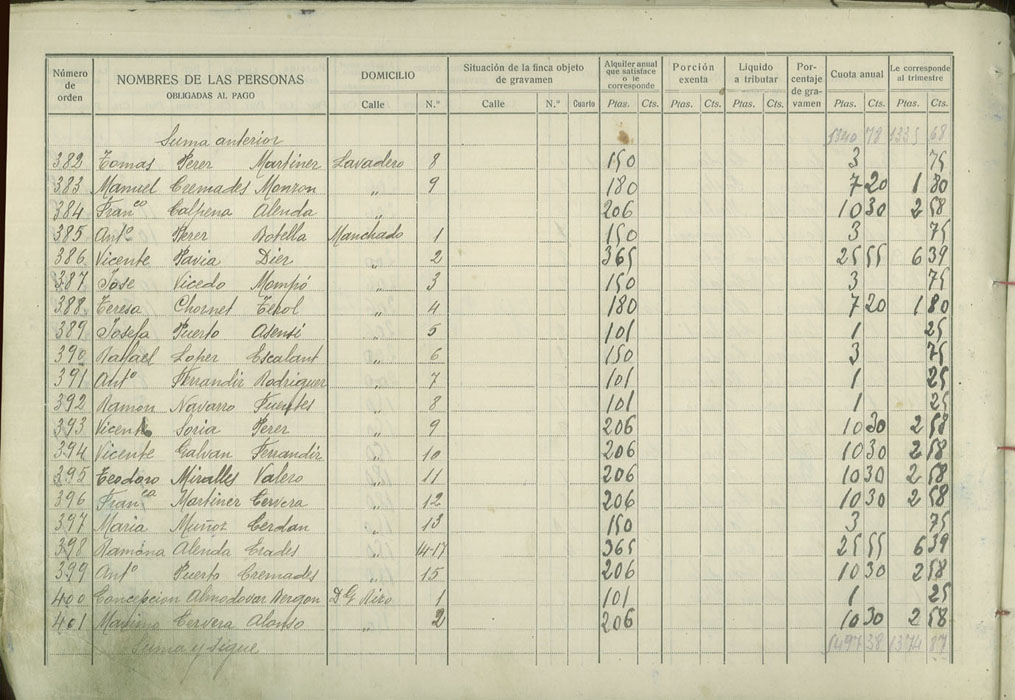 Número de orden NOMBRES DE LAS PERSONAS OBLIGADAS AL PAGO DOMICILIO Situación de la finca objeto de gravamen Alquiler anual que satisface o le corresponde Porción exenta Líquido a tributar Porcentaje de gravamen Cuota anual Le corresponde al trimestre
Calle N.º Calle N.º Cuarto Ptas. Cts. Ptas. Cts. Ptas. Cts. Ptas. Cts. Ptas. Cts.
Suma anterior 1340 78 1335 68
382 Tomas Perez Martinez Lavadero 8 150 3 75
383 Manuel Cremades Monzon " 9 180 7 20 1 80
384 Franco Calpena Alenda " 206 10 30 2 58
385 Anto Perez Botella Manchado 1 150 3 75
386 Vicente Pavia Diez " 2 365 25 55 6 39
387 Jose Vicedo Mompó " 3 150 3 75
388 Teresa Chornet Terol " 4 180 7 20 1 80
389 Josefa Puerto Asensi " 5 101 1 25
390 Rafael Lopez Escalant " 6 150 3 75
391 Anto Ferrandiz Rodriguez " 7 101 1 25
392 Ramon Navarro Fuentes " 8 101 1 25
393 Vicente Soria Perez " 9 206 10 30 2 58
394 Vicente Galvan Ferrandiz " 10 206 10 30 2 58
395 Teodoro Miralles Valero " 11 206 10 30 2 58
396 Franca Martinez Cervera " 12 206 10 30 2 58
397 Maria Muñoz Cerdan " 13 150 3 75
398 Ramona Alenda Prades " 14-17 365 25 55 6 39
399 Anto Puerto Cremades " 15 206 10 30 2 58
400 Concepcion Almodovar 1 101 1 25
401 Maximo Cervera Alonso " 2 206 10 30 2 58
Suma y sigue 1497 38 1374 87